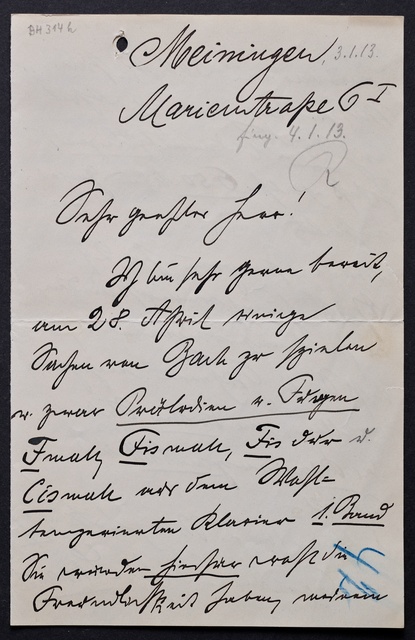 BH 314 b
Meiningen, 3.1.13.
Marienstraße 6 I
4.1.13.
R
Sehr geehrter Herr!
Ich bin sehr gerne bereit,
am 28. April einige
Sachen von Bach zu spielen
u. zwar Präludien u. Fugen
Fmoll, Fismoll, Fis dur u.
Cismoll aus dem Wohl-
temperierten Klavier 1. Band
Sie würden hierher wohl die
Freundlichkeit haben, meinem